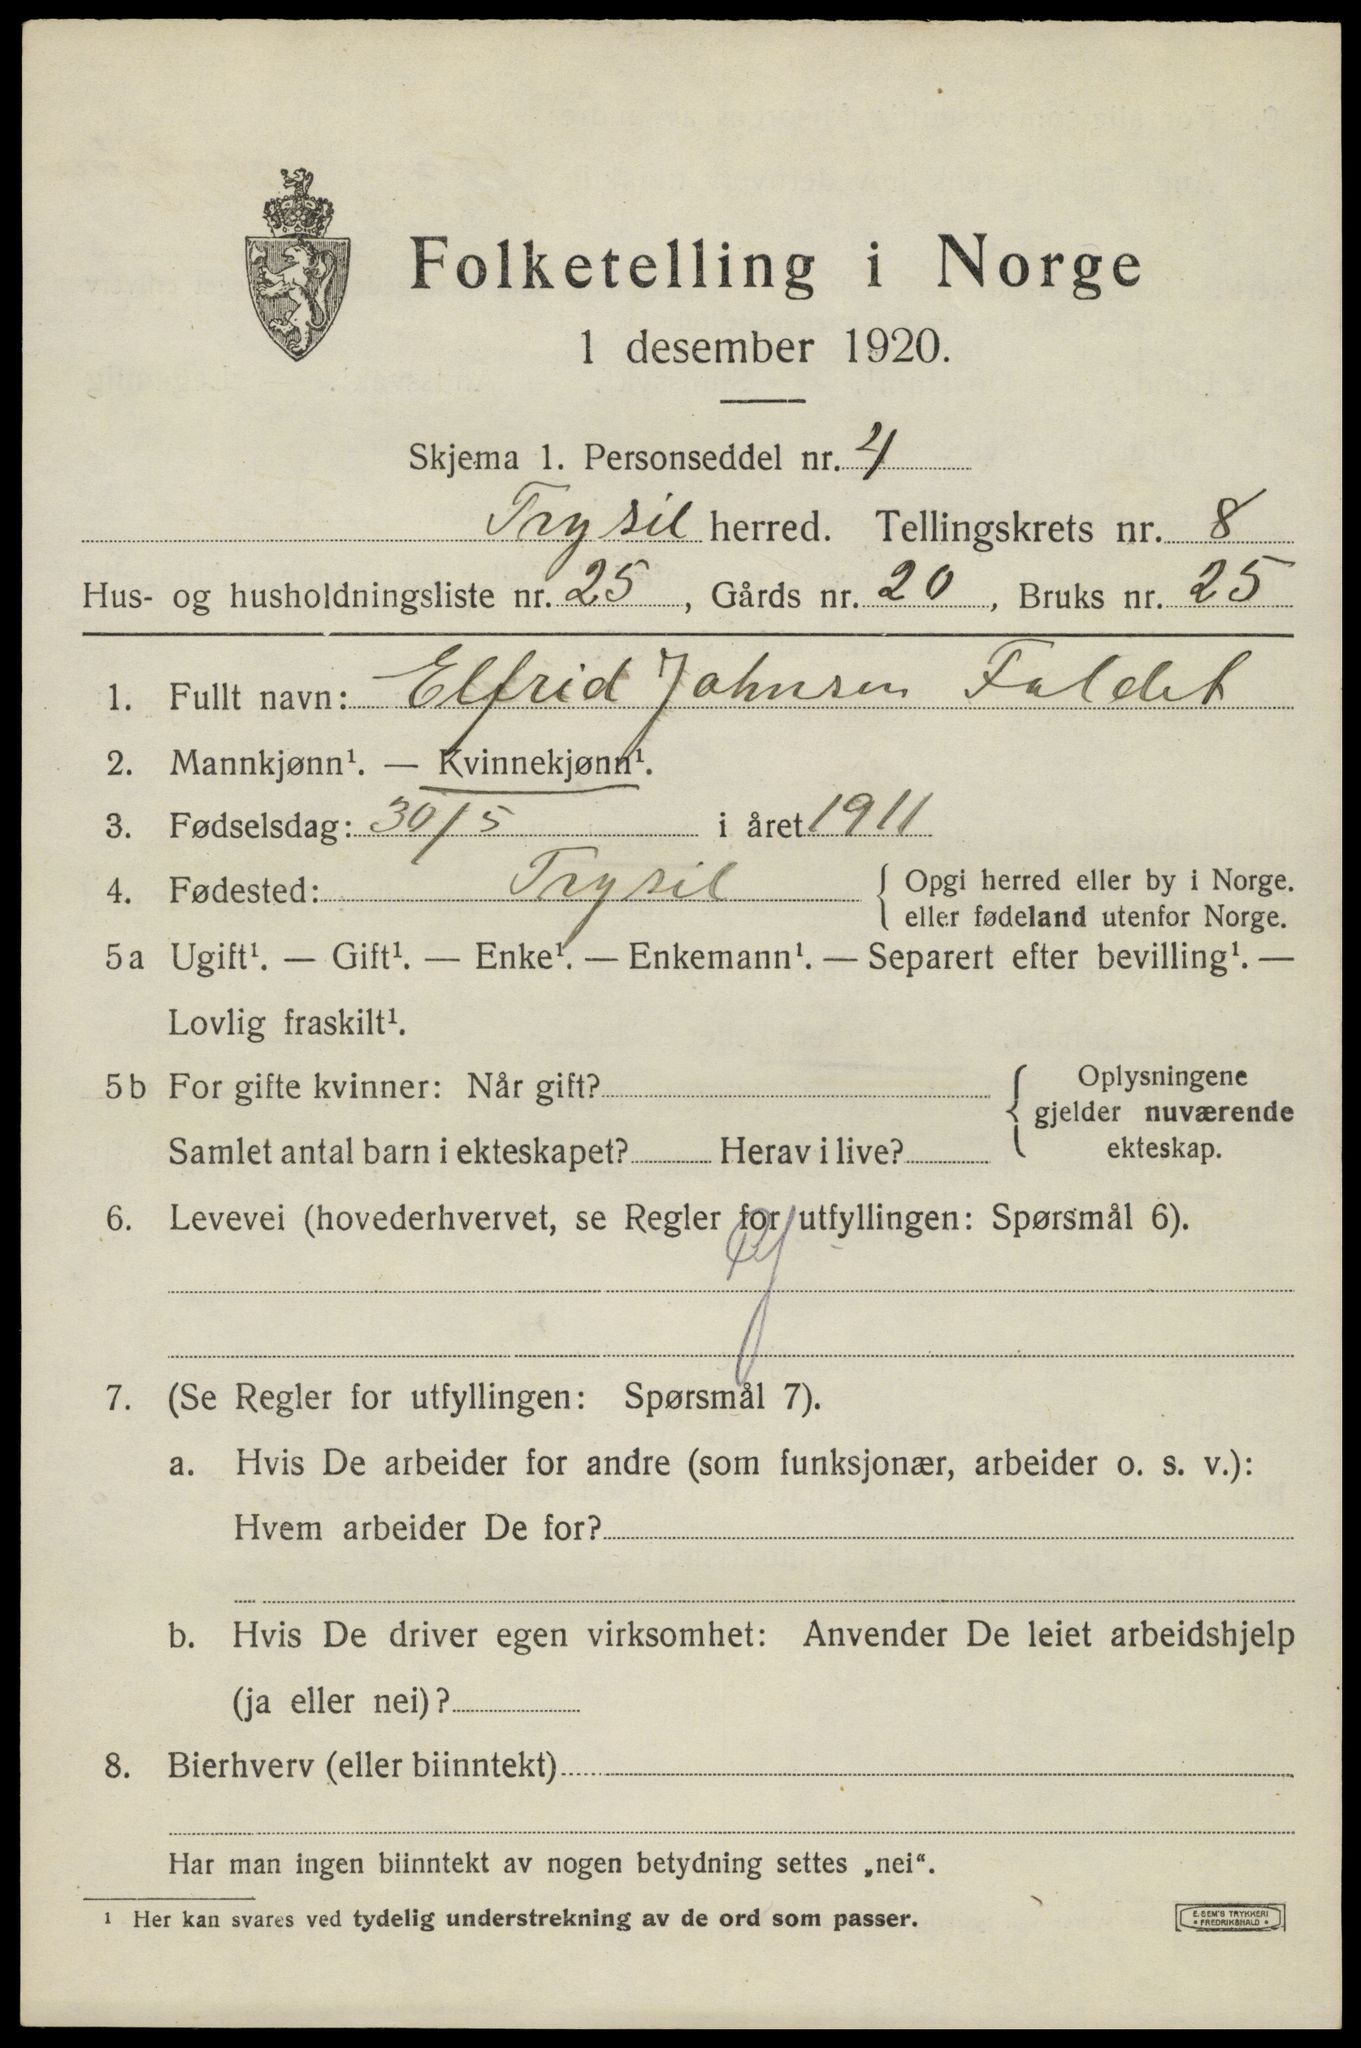 Folketelling i Norge
1 desember 1920.
Skjema 1. Personseddel nr. 4
Trysil herred. Tellingskrets nr. 8
Hus- og husholdningsliste nr. 25, Gårds nr. 20, Bruks nr. 25
1. Fullt navn: Elfrid Johnsen Faldet
2. Mannkjønn¹. — Kvinnekjønn¹.
3. Fødselsdag: 30/5 i året 1911
4. Fødested: Trysil { Opgi herred eller by i Norge.
eller fødeland utenfor Norge.
5a Ugift¹. — Gift¹. — Enke¹. — Enkemann¹. — Separert efter bevilling¹. —
Lovlig fraskilt¹.
5b For gifte kvinner: Når gift?
Samlet antal barn i ekteskapet? Herav i live?
{ Oplysningene
gjelder nuværende
ekteskap.
6. Levevei (hovederhvervet, se Regler for utfyllingen: Spørsmål 6).
7. (Se Regler for utfyllingen: Spørsmål 7).
a. Hvis De arbeider for andre (som funksjonær, arbeider o. s. v.):
Hvem arbeider De for?
b. Hvis De driver egen virksomhet: Anvender De leiet arbeidshjelp
(ja eller nei)?
8. Bierhverv (eller biinntekt)
Har man ingen biinntekt av nogen betydning settes „nei“.
¹ Her kan svares ved tydelig understrekning av de ord som passer.
E. SEM'S TRYKKERI
• FREDRIKSHALD •